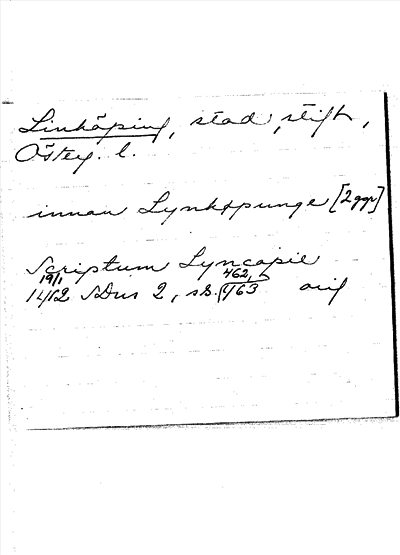 Linköping, stad, stift,
Östg. l.
innan Lynkøpunge [2 ggr]
Scriptum Lyncopie
19/1 462,
1412 SDns 2, s. 463 orig